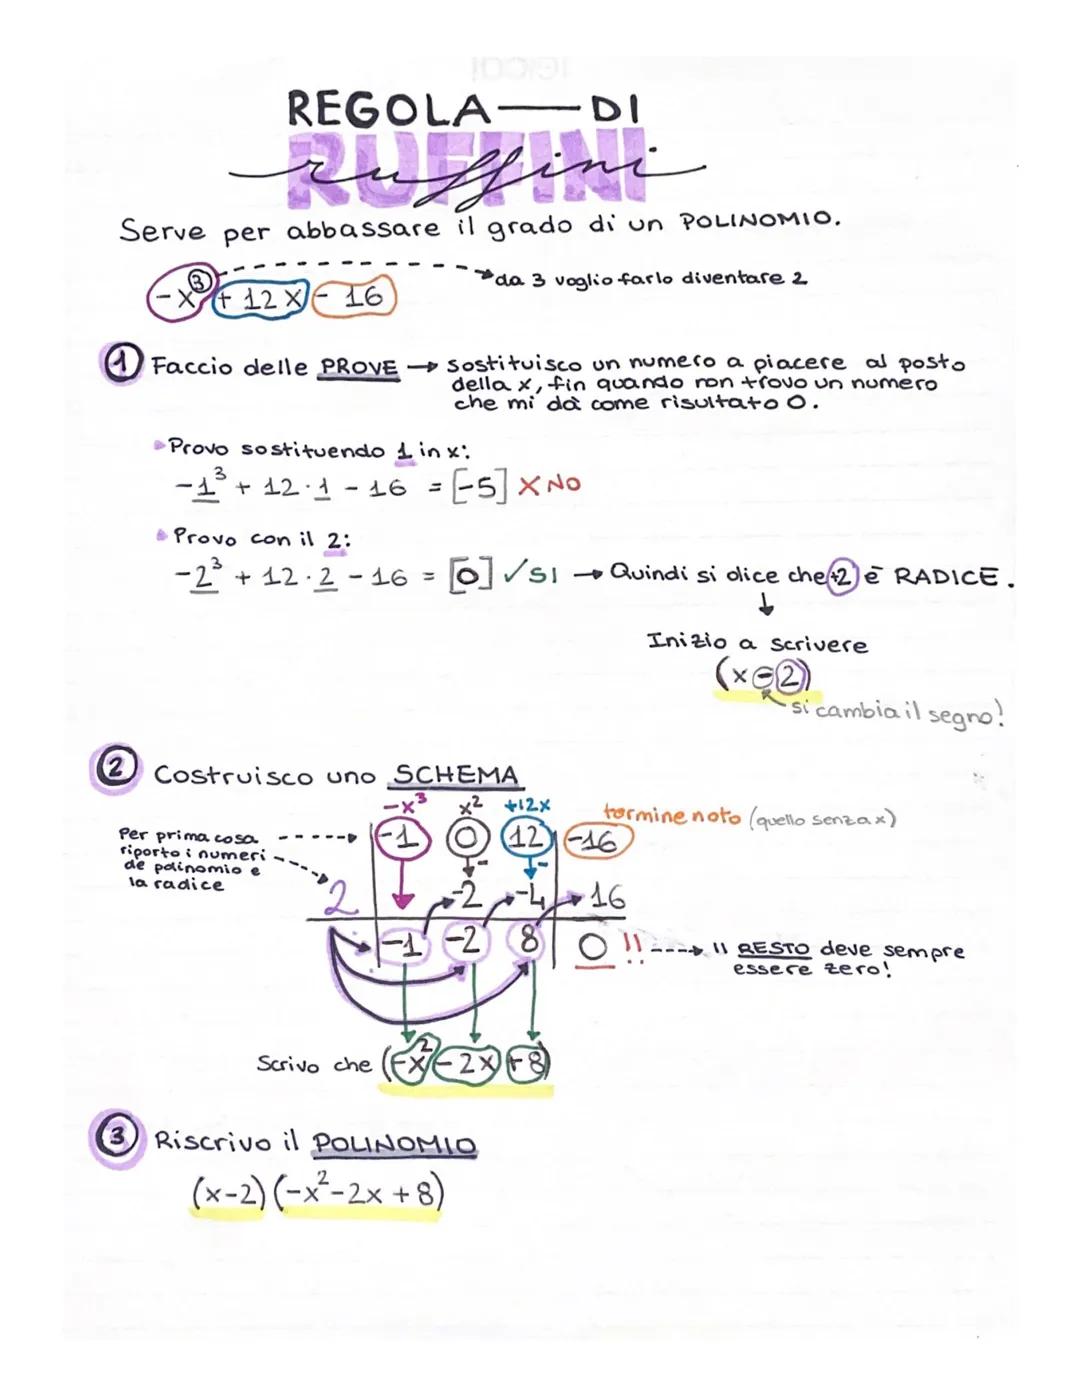 REGOLA — DI
RUFFINI
ruffini
Serve per abbassare il grado di un POLINOMIO.
-x³ + 12x - 16
da 3 voglio farlo diventare 2
1 Faccio delle PROVE → sostituisco un numero a piacere al posto
della x, fin quando non trovo un numero
che mi dà come risultato 0.
Provo sostituendo 1 in x:
-1³ + 12·1 - 16 = [-5] X NO
Provo con il 2:
-2³ + 12·2 - 16 = [0] ✓SI → Quindi si dice che +2 è RADICE.
↓
Inizio a scrivere
(x-2)
si cambia il segno!
2 Costruisco uno SCHEMA
-x³ x² +12x
termine noto (quello senza x)
Per prima cosa
riporto i numeri
de polinomio e
la radice
-1 0 12 -16
2 -2 -4 16
-1 -2 8 0 !!
Il RESTO deve sempre
essere zero!
Scrivo che (-x²-2x+8)
3 Riscrivo il POLINOMIO
(x-2)(-x²-2x+8)